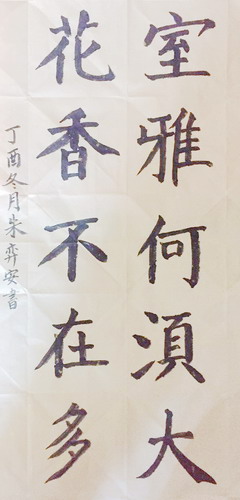 室雅何須大
花香不在多
丁酉冬月朱弈安書